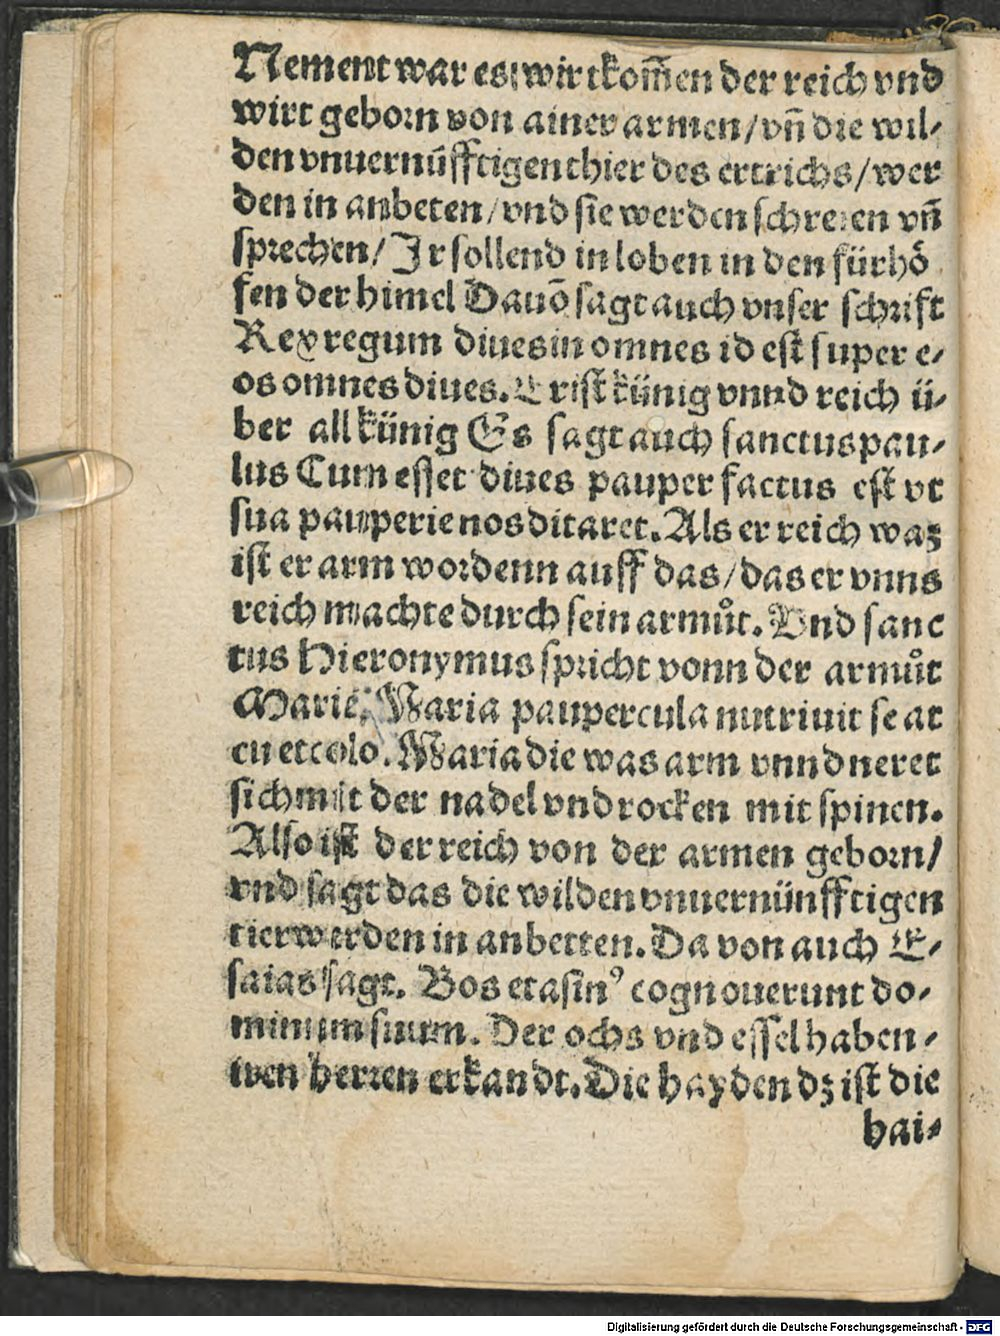 Nement war es wirt kom̃en der reich vnd
wirt geborn von ainer armen/vñ die wil-
den vnuernũfftigen thier des ertrichs/wer
den in anbeten/vnd sie werden schreien vñ
sprechen/Ir sollend in loben in den fürhȫ
fen der himel Dauõ sagt auch vnser schrift
Rex regum diues in omnes id est super e-
os omnes diues. Er ist künig vnnd reich ü-
ber all künig Es sagt auch sanctus pau-
lus Cum esset diues pauper factus est vt
sua pauperie nos ditaret. Als er reich waz
ist er arm wordenn auff das/das er vnns
reich machte durch sein armůt. Vnd sanc
tus Hieronymus spricht vonn der armůt
Marie, Maria paupercula nutriuit se ac
cu et colo. Maria die was arm vnnd neret
sich mit der nadel vnd rocken mit spinen.
Also ist der reich von der armen geborn/
vnd sagt das die wilden vnuernünfftigen
tier werden in anbetten. Da von auch E-
saias sagt. Bos et asinꝰ cognouerunt do-
minum suum. Der ochs vnd essel haben-
herren erkandt. Die hayden dz ist die
hai-
Digitalisierung gefördert durch die Deutsche Forschungsgemeinschaft - DFG